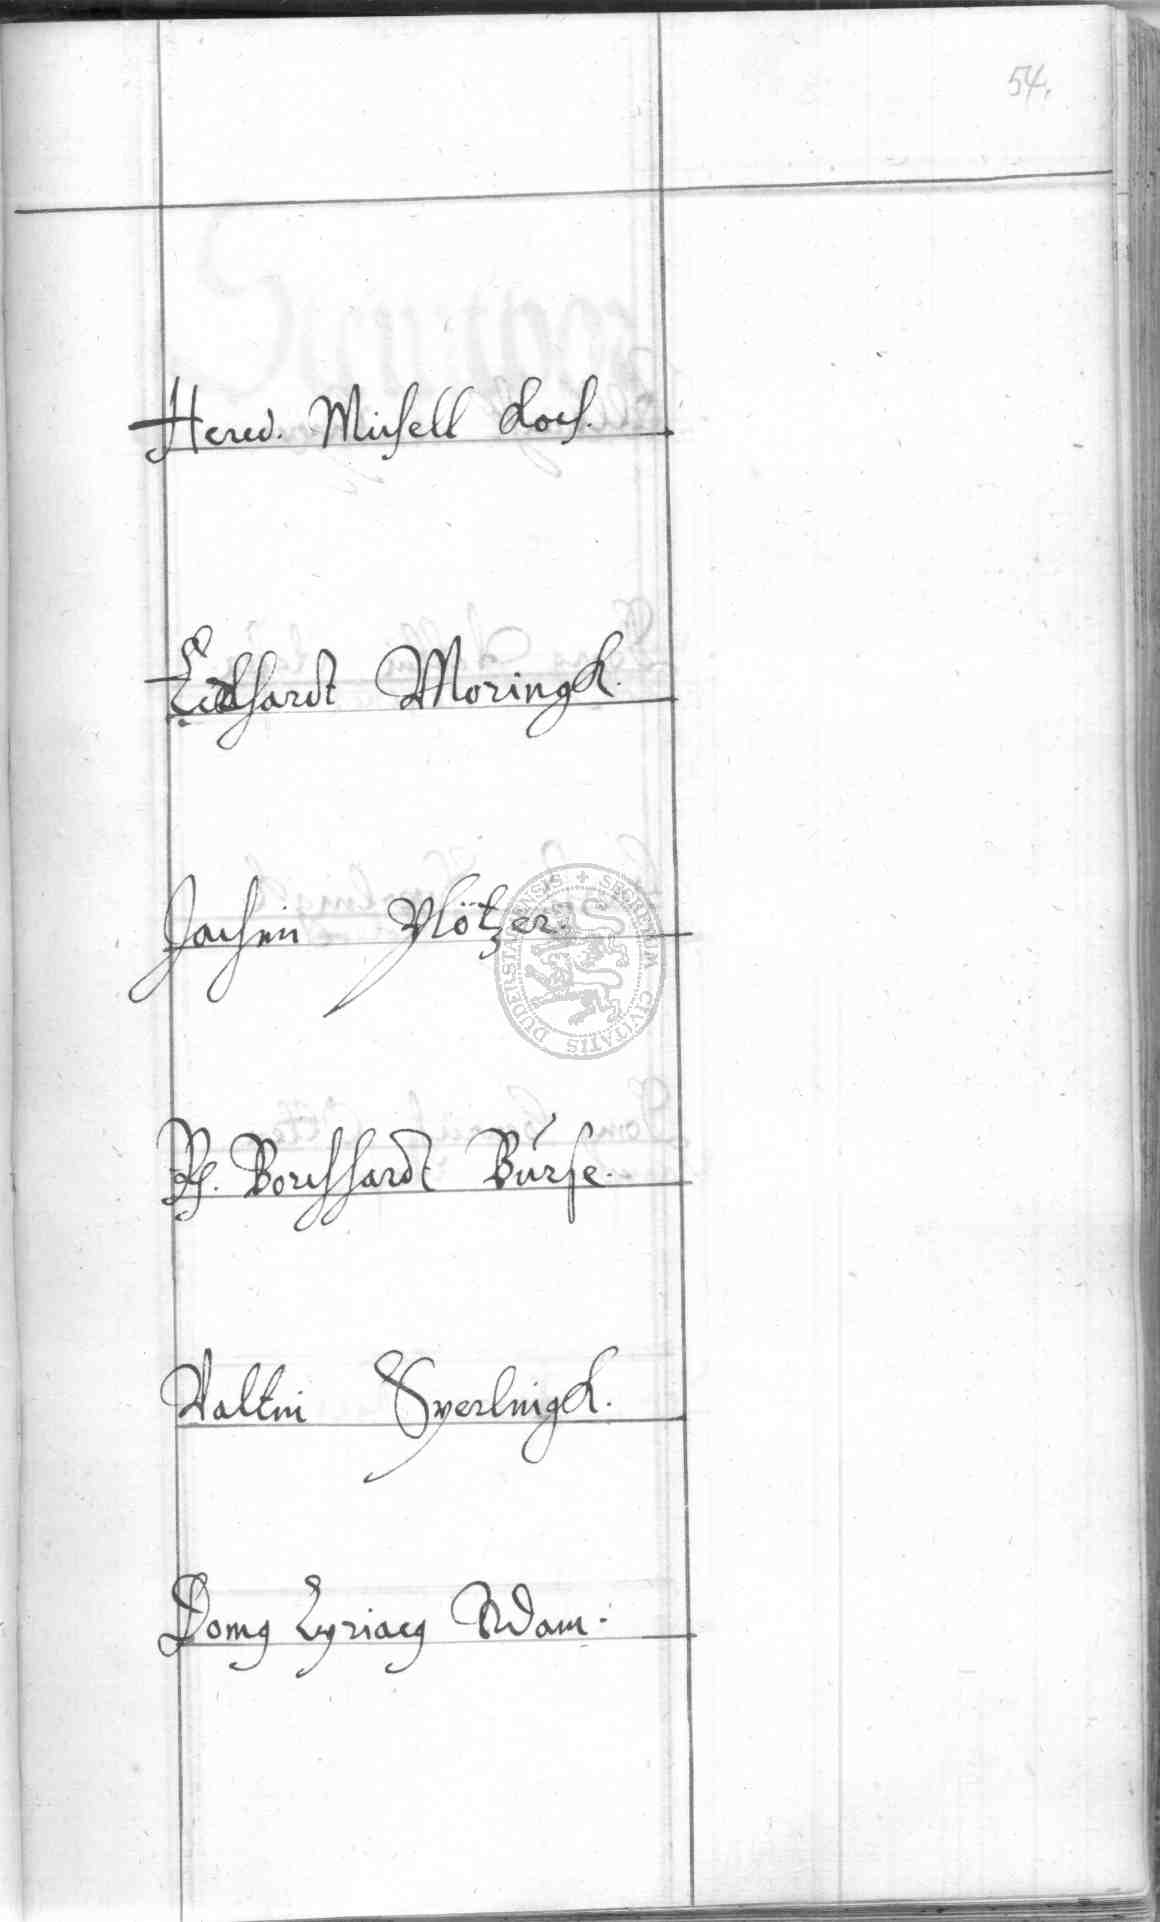 54.
Hered. Michell Koch.
Eckhardt Moringk.
Jachim Plötzer.
H. Borchhardt Bürse.
Valtin Sperlingk.
Domg Cyriacg Adam.
SECRETUM CIVITATIS DUDERSTADENSIS